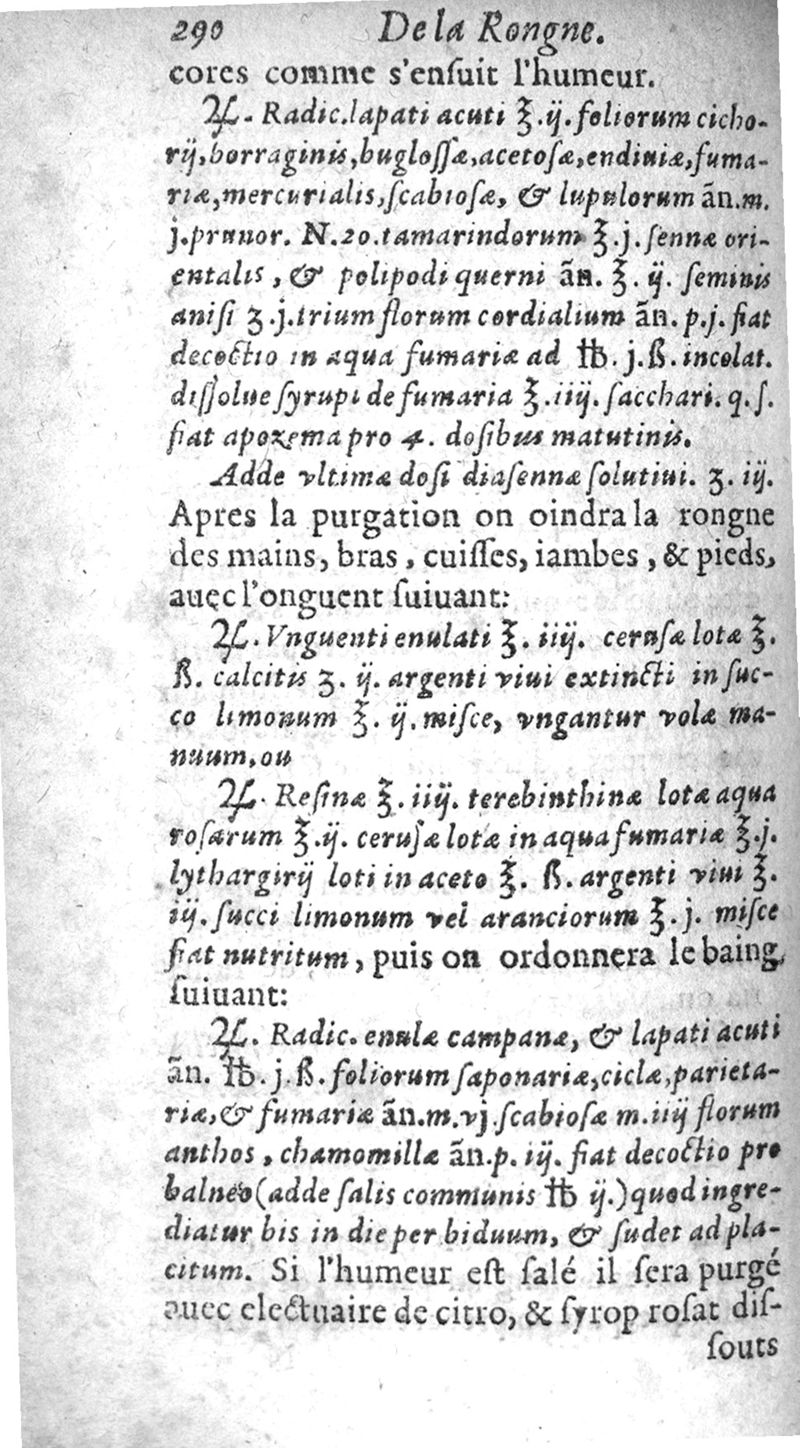 290 De la Rongne.
cores comme s'enſuit l'humeur.
♃. Radic. lapati acuti ℥.ij. foliorum cicho-
rij, borraginis, bugloſſæ, acetoſæ, endiuiæ, fuma-
riæ, mercurialis, ſcabioſæ, & lupulorum ãn.m.
j. prunor. N.20. tamarindorum ℥.j. ſennæ ori-
entalis, & polipodi querni ãn. ℥. ij. ſeminis
aniſi ʒ.j. trium florum cordialium ãn. p.j. fiat
decoctio in aqua fumariæ ad ℔. j.ß. incolat.
diſſolue ſyrupi de fumaria ℥.iiij. ſacchari. q. ſ.
fiat apozema pro 4. doſibus matutinis.
Adde vltimæ doſi diaſennæ ſolutiui. ʒ. ij.
Apres la purgation on oindra la rongne
des mains, bras, cuiſſes, iambes, & pieds,
auec l'onguent ſuiuant:
♃. Vnguenti enulati ℥. iiij. ceruſæ lotæ ℥.
ß. calcitis ʒ. ij. argenti viui extincti in ſuc-
co limonum ℥. ij. miſce, vngantur volæ ma-
nuum, ou
♃. Reſinæ ℥. iiij. terebinthinæ lotæ aqua
roſarum ℥.ij. ceruſæ lotæ in aqua fumariæ ℥.j.
lythargirij loti in aceto ℥. ß. argenti viui ℥.
iij. ſucci limonum vel aranciorum ℥.j. miſce
fiat nutritum, puis on ordonnera le baing
ſuiuant:
♃. Radic. enulæ campanæ, & lapati acuti
ãn. ℔. j.ß. foliorum ſaponariæ, ciclæ, parieta-
riæ, & fumariæ ãn.m.vj. ſcabioſæ m.iiij florum
anthos, chamomillæ ãn.p. iij. fiat decoctio pro
balneo (adde ſalis communis ℔ ij.) quod ingre-
diatur bis in die per biduum, & ſudet ad pla-
citum. Si l'humeur eſt ſalé il ſera purgé
auec electuaire de citro, & ſyrop roſat diſ-
ſouts